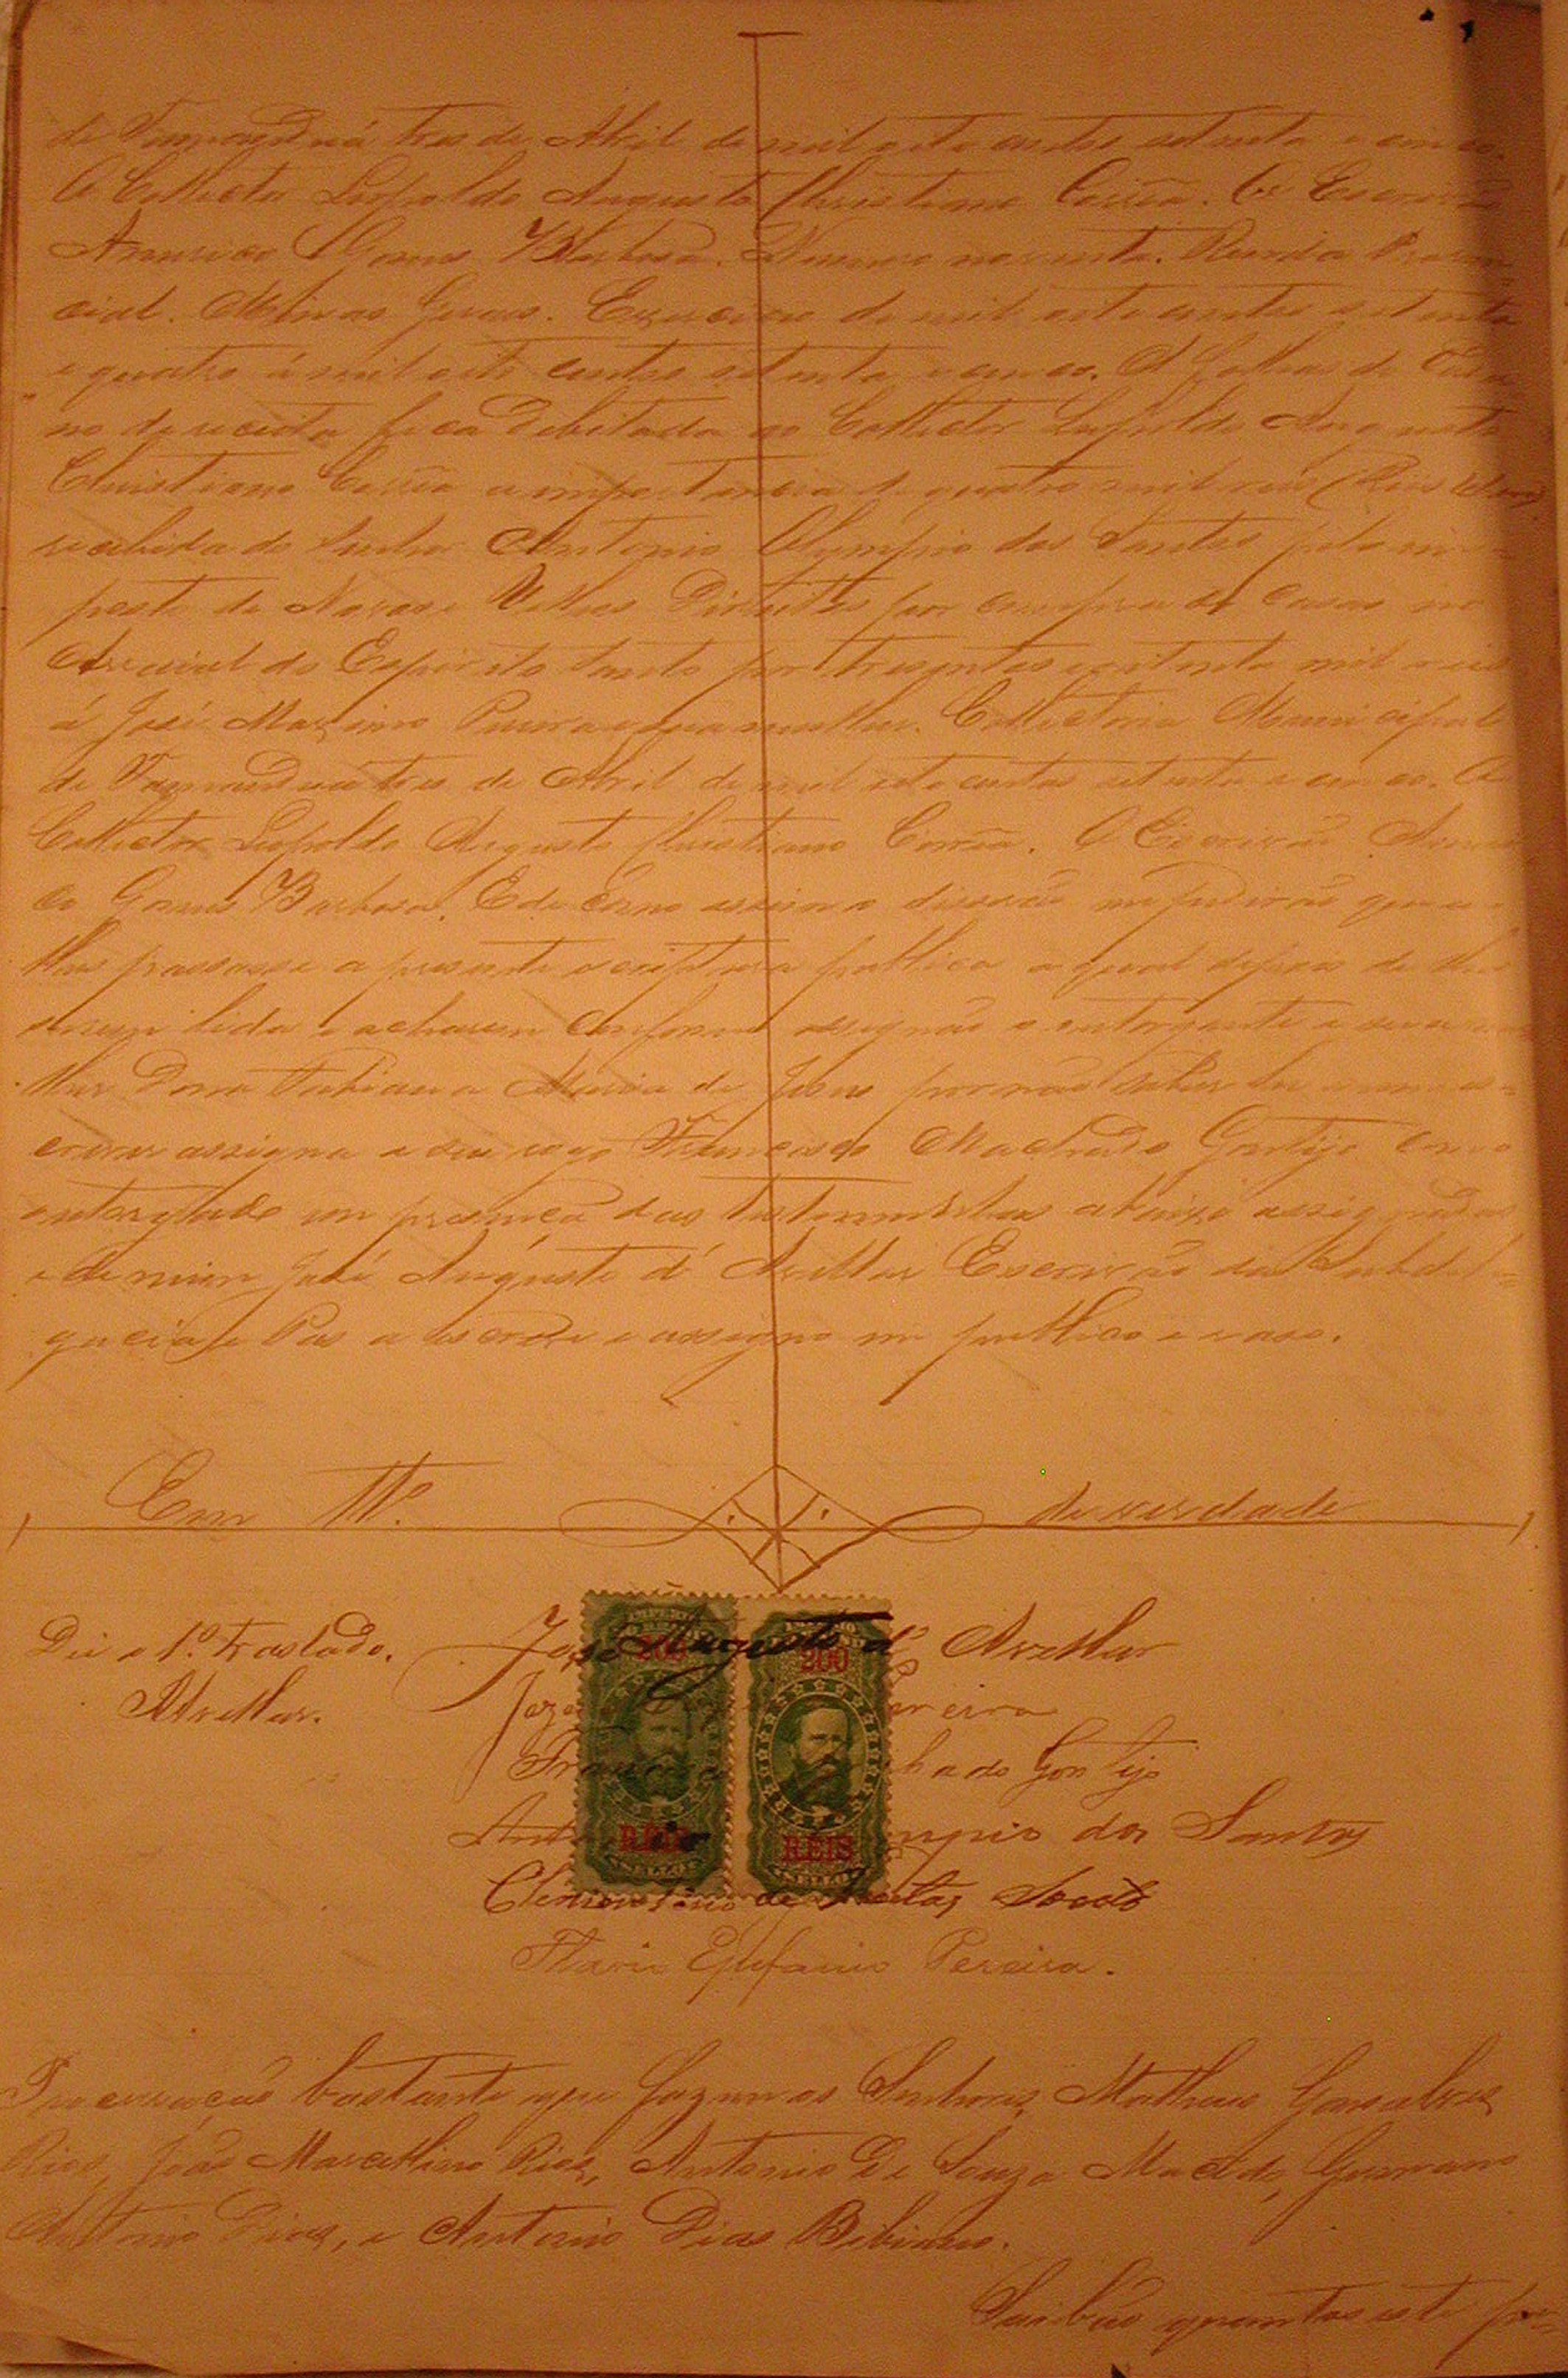 de Tamanduá tres de Abril de mil oito centos setenta e cinco.
O Collector Leopoldo Augusto Christiano Corrêa. O Escrivão
Americo Gomes Barbosa. Numero noventa. Renda Provin
cial. Minas Geraes. Exercicio de mil oito centos setenta
e quatro á mil oito centos setenta e cinco. A folhas do
no de receita fica debitada ao Collector Leopoldo Augusto
Christiano Corrêa a importancia de quatro mil reis (Reis
recebida do Senhor Antonio Olympio dos Santos pelo im=
posto de Novos e Velhos Direitos por compra de casas no
Arraial do Espirito Santo por tresentos e oitenta mil reis
á José Maximo Pereira e sua mulher. Collectoria Municipal
de Tamanduá tres de Abril de mil oito centos setenta e cinco. O
Collector Leopoldo Augusto Christiano Corrêa. O Escrivão Ameri
co Gomes Barbosa. E de como assim o disserão me pedirão que
lhes passasse a presente escriptura publica a qual depois de lhes
serem lida e acharem conforme assignão o outorgante e sua mu
lher Dona Fabiana Maria de Jesus por não saber ler nem es=
crever assigna a seu rogo Francisco Machado Gontijo como
outorgado em presença das testemunhas abaixo assignadas
e de mim José Augusto d' Avellar Escrivão da Subdele=
gacia e Pas a escrevi e assigno em publico e raso.
Em Tto. de verdade
Dei o 1º. traslado. José Augusto d' Avellar
Avellar. Joze ereira
Francisco chado Gontijo
Anto mpio dos Santos
Clementino de Freitas
Flavio Epifanio Pereira.
Procuração bastante que fazem os Senhores Matheus Gonsalves
Rios, João Marcellino Rios, Antonio De Souza Macedo, Germano
Antonio Dias, e Antonio Dias Bibiano.
Saibão quantos este pu=
200
200
REIS
REIS